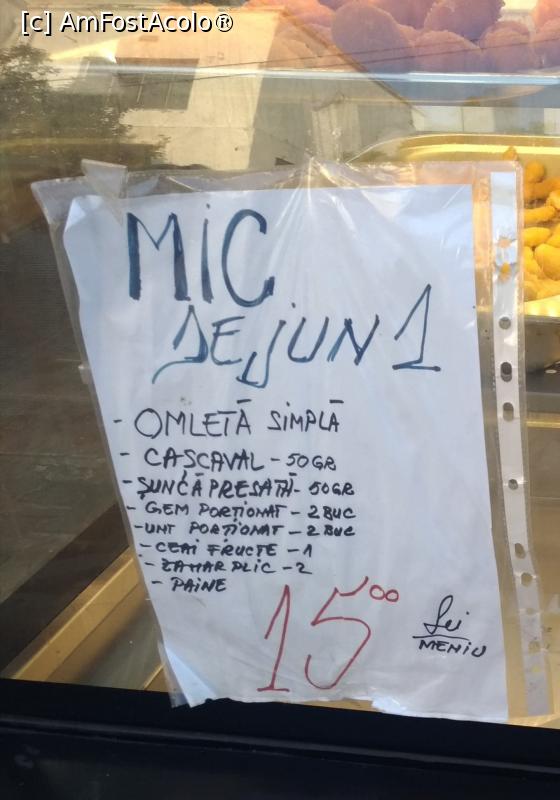 [c] AmFostAcolo®
MIC
DEJUN 1
- OMLETĂ SIMPLĂ
- CAȘCAVAL - 50GR
- ȘUNCĂ PRESATĂ - 50GR
- GEM PORȚIONAT - 2 BUC
- UNT PORȚIONAT - 2 BUC
- CEAI FRUCTE - 1
- ZAHAR PLIC - 2
- PAINE
15⁰⁰ Lei
MENIU